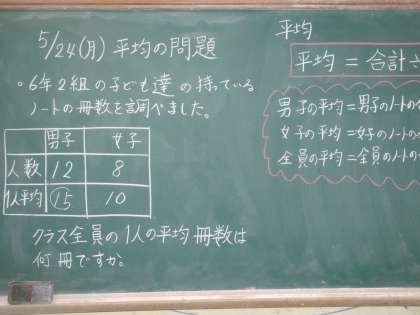 5/24(月) 平均の問題
。6年2組の子ども達の持っている
ノートの冊数を調べました。
男子 女子
人数 12 8
1人平均 15 10
クラス全員の1人の平均冊数は
何冊ですか。
平均
平均 = 合計÷
男子の平均=男子のノートの
女子の平均=女子のノートの
全員の平均=全員のノートの